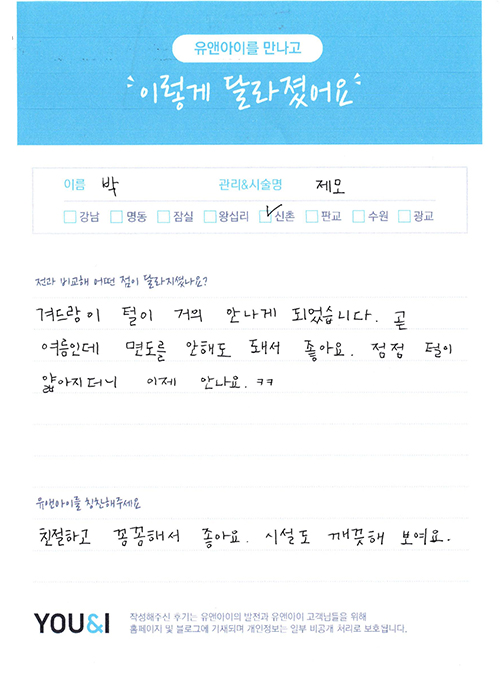 유앤아이를 만나고
이렇게 달라졌어요
이름 박 관리&시술명 제모
강남 명동 잠실 왕십리 신촌 판교 수원 광교
전과 비교해 어떤 점이 달라지셨나요?
겨드랑이 털이 거의 안나게 되었습니다. 곧
여름인데 면도를 안해도 돼서 좋아요. 점점 털이
얇아지더니 이제 안나요. ㅋㅋ
유앤아이를 칭찬해주세요
친절하고 꼼꼼해서 좋아요. 시설도 깨끗해 보여요.
YOU&I
작성해주신 후기는 유앤아이의 발전과 유앤아이 고객님들을 위해
홈페이지 및 블로그에 기재되며 개인정보는 일부 비공개 처리로 보호됩니다.